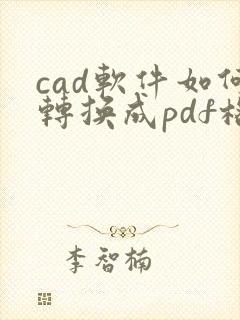 cad軟件如何
轉換成pdf格
李智楠